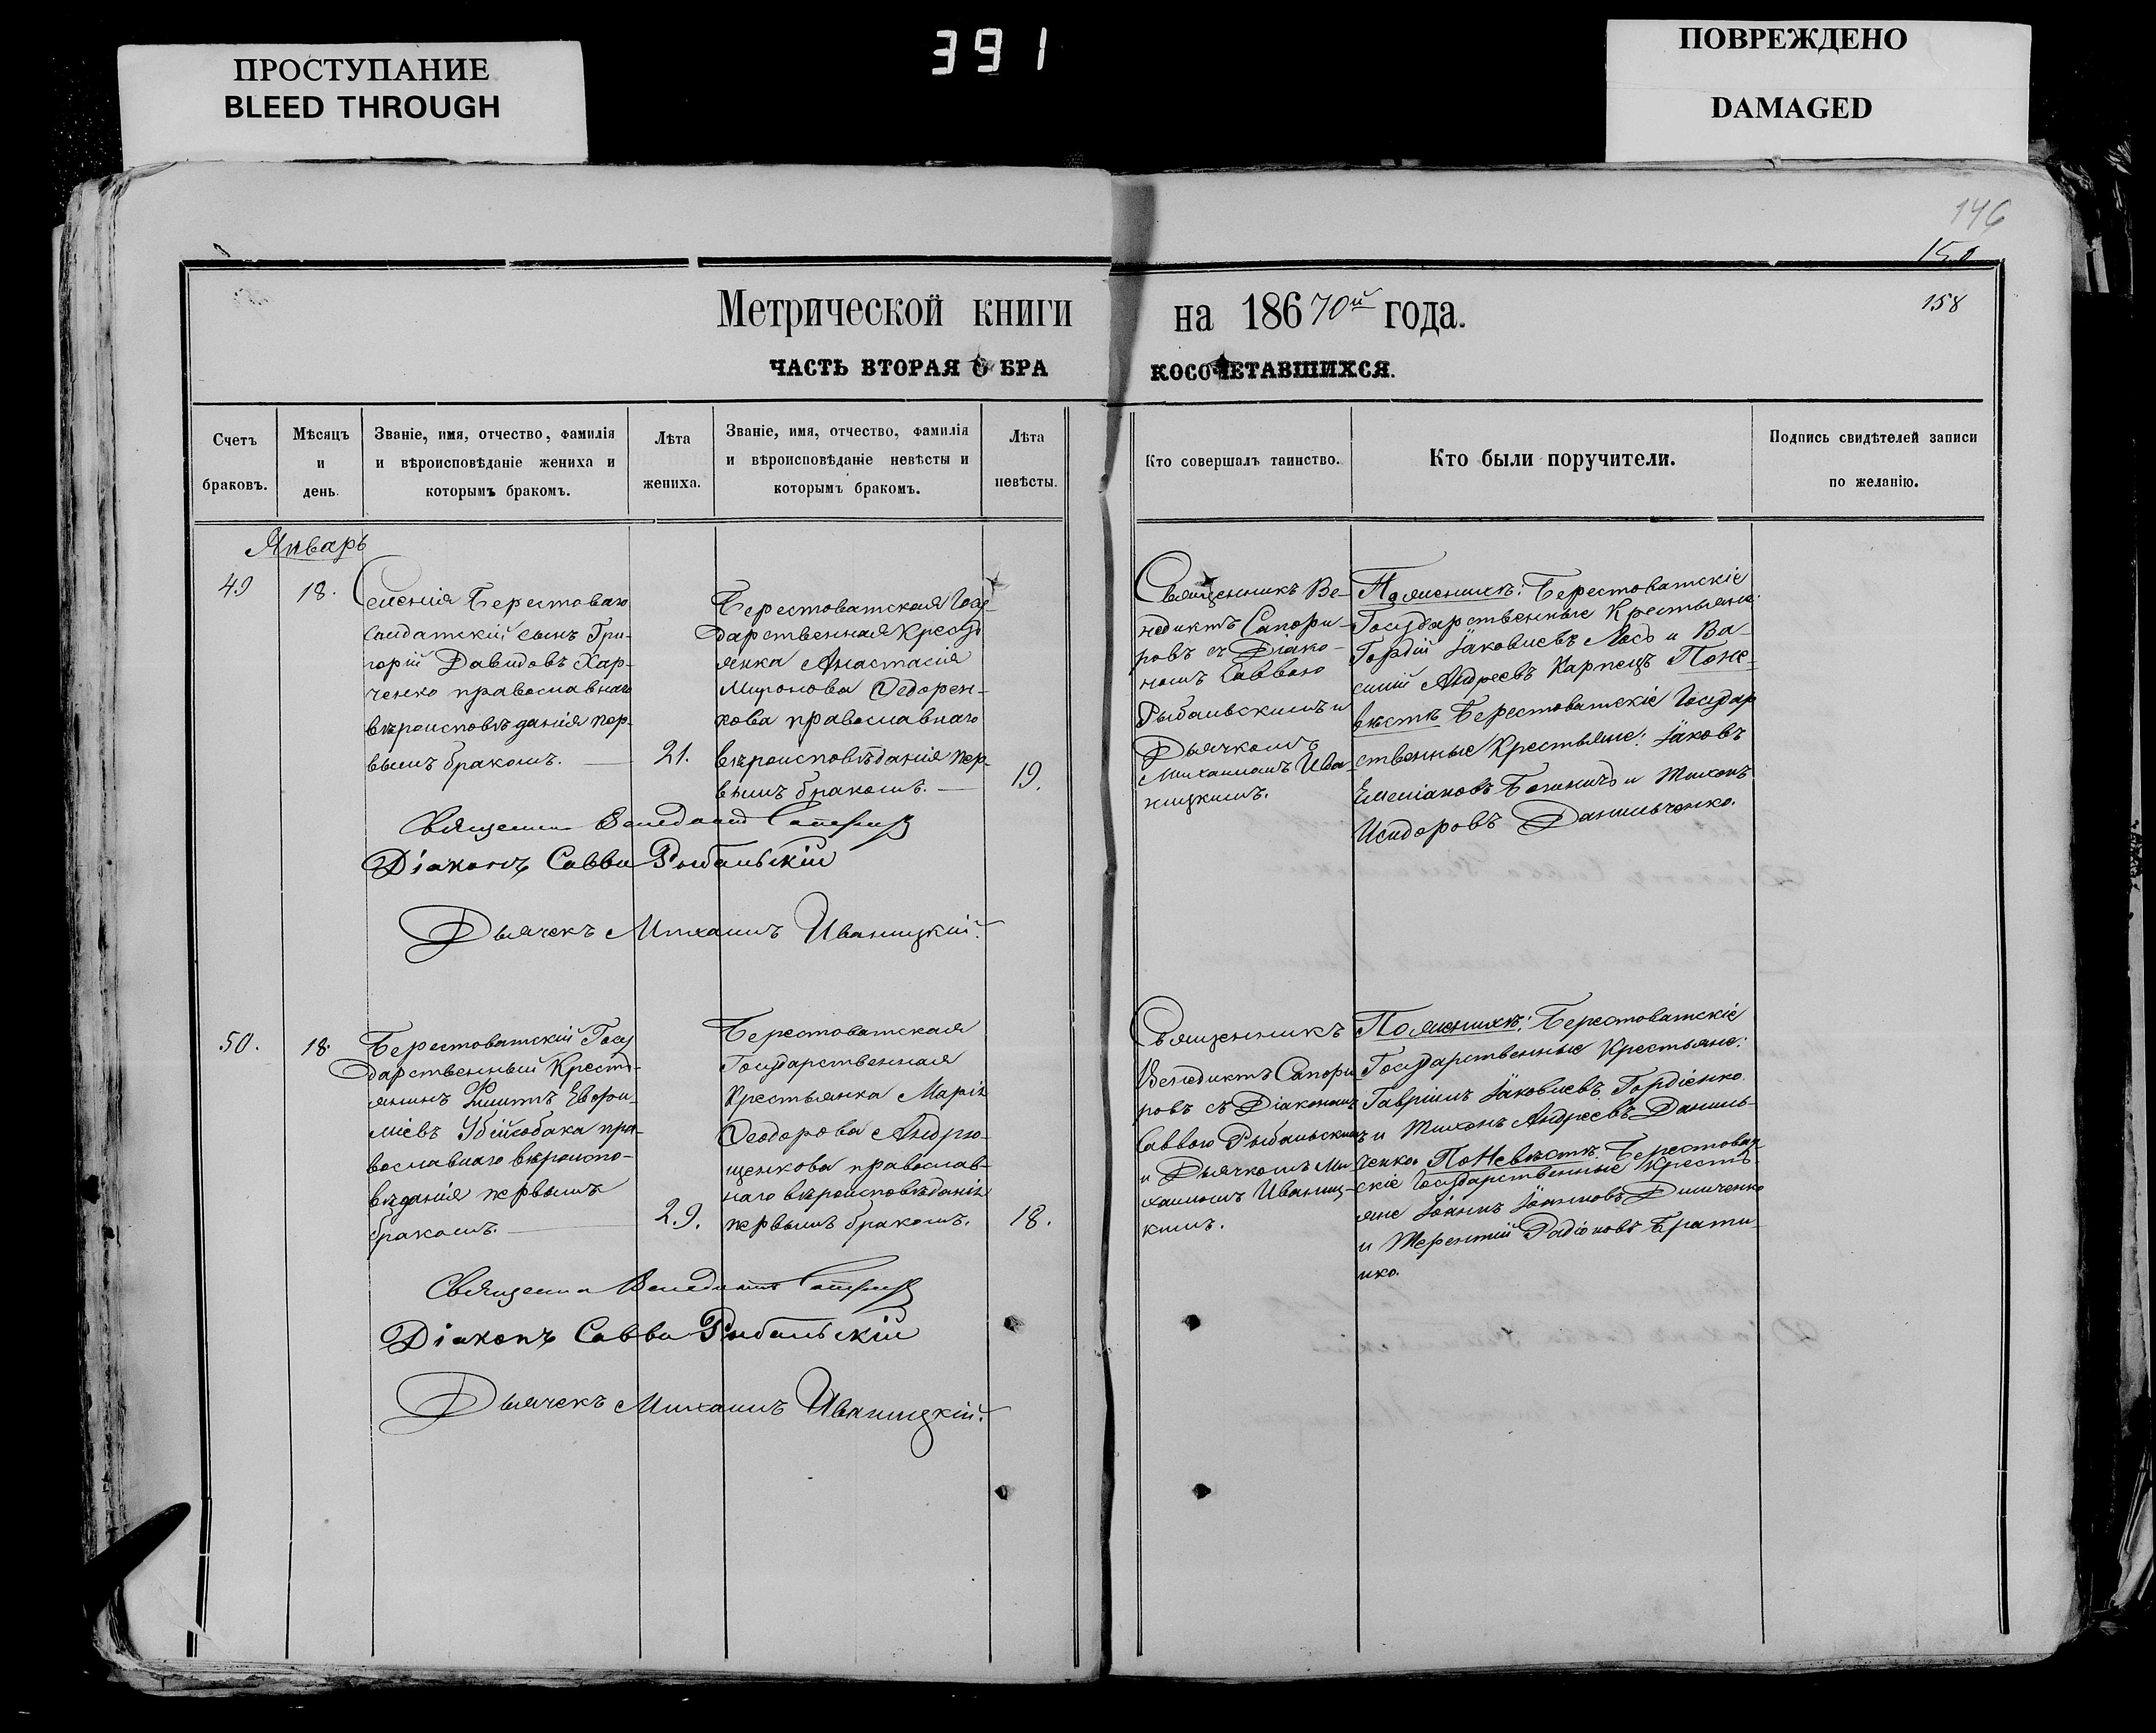 391
ПРОСТУПАНИЕ
BLEED THROUGH
ПОВРЕЖДЕНО
DAMAGED
146
150
158
Метрической книги на 18670й года.
ЧАСТЬ ВТОРАЯ О БРАКОСОЧЕТАВШИХСЯ.
Счетъ
браковъ.
Мѣсяцъ
и
день.
Званіе, имя, отчество, фамилія
и вѣроисповѣданіе жениха и
которымъ бракомъ.
Лѣта
жениха.
Званіе, имя, отчество, фамилія
и вѣроисповѣданіе невѣсты и
которымъ бракомъ.
Лѣта
невѣсты.
Кто совершалъ таинство.
Кто были поручители.
Подпись свидѣтелей записи
по желанію.
Январь
49
18.
Селенія Берестоваго
Солдатскій сынъ Гри-
горій Давидовъ Хар-
ченко православнаго
вѣроисповѣданія пер-
вымъ бракомъ.
21.
Берестоватская Госу-
дарственная Кресть
янка Анастасія
Миронова Федорен-
кова православнаго
вѣроисповѣданія пер-
вымъ бракомъ.
19.
Священникъ Ве-
недиктъ Сапори-
ровъ съ Діако-
номъ Саввою
Рыбальскимъ и
Дьячкомъ
Михаиломъ Ива-
ницкимъ.
По женихѣ: Берестоватскіе
Государственные Крестьяне:
Гордій Іаковлевъ Лось и Ва-
силій Андреевъ Карпецъ По не-
вѣстѣ Берестоватскіе Государ
ственные Крестьяне: Іаковъ
Емеліановъ и Тихонъ
Исидоровъ Данильченко.
Священникъ Венедиктъ
Діаконъ Савва Рыбальскій
Дьячекъ Михаилъ Иваницкій.
50.
18.
Берестоватскій Госу
дарственный Кресть-
янинъ Евфи-
міевъ Убійсобака пра-
вославнаго вѣроиспо-
вѣданія первымъ
бракомъ.
29.
Берестоватская
Государственная
Крестьянка Марія
Феодорова Андрю-
щенкова православ-
наго вѣроисповѣданія
первымъ бракомъ.
18.
Священникъ
Венедиктъ Сапори
ровъ съ Діакономъ
Саввою Рыбальскимъ
и Дьячкомъ Ми-
хаиломъ Иваниц-
кимъ.
По женихѣ: Берестоватскіе
Государственные Крестьяне:
Гавріилъ Іаковлевъ Гордіенко
и Тихонъ Андреевъ Даниль-
ченко. По Невѣстѣ: Берестоват
скіе Государственные Кресть-
яне Іоаннъ Іоанновъ
и Терентій Радіоновъ
Священникъ Венедиктъ
Діаконъ Савва Рыбальскій
Дьячекъ Михаилъ Иваницкій.